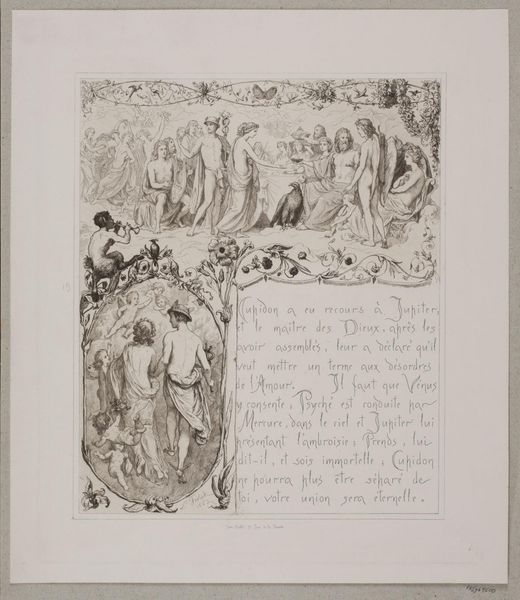 Cupidon a eu recours à Jupiter,
et le maitre des Dieux, après les
avoir assemblés, leur a déclaré qu'il
veut mettre un terme aux désordres
de l'Amour. Il faut que Vénus
y consente ; Psyché est conduite par
Mercure, dans le ciel et Jupiter lui
présentant l'ambroisie ; Prends, lui
dit-il, et sois immortelle ; Cupidon
ne pourra plus être séparé de
toi, votre union sera éternelle.